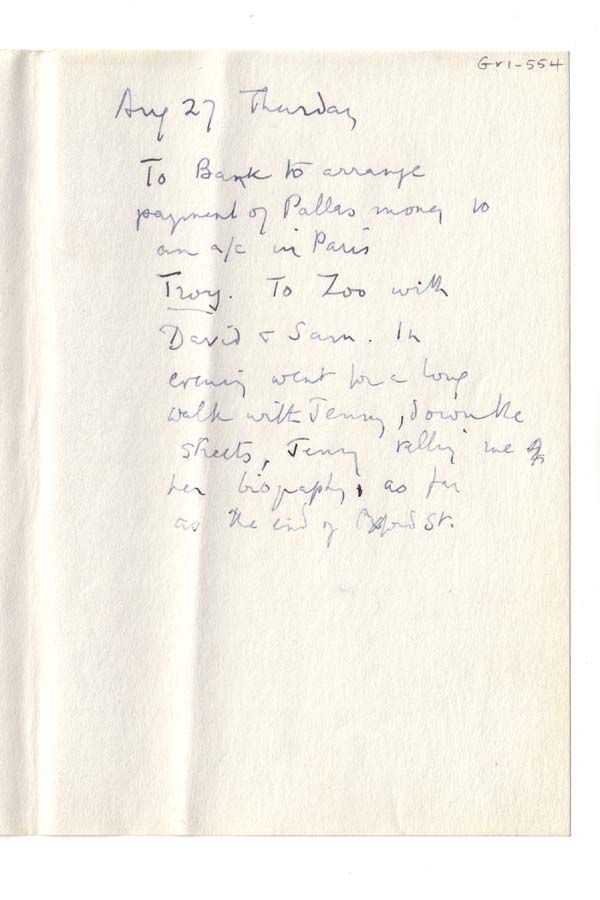 Gr1-554
Aug 27 Thursday
To Bank to arrange
payment of Pallas money to
an a/c in Paris
Troy. To Zoo with
David & Sam. In
evening went for a long
walk with Jenny, down the
streets, Jenny telling me of
her biography, as far
as the end of St.